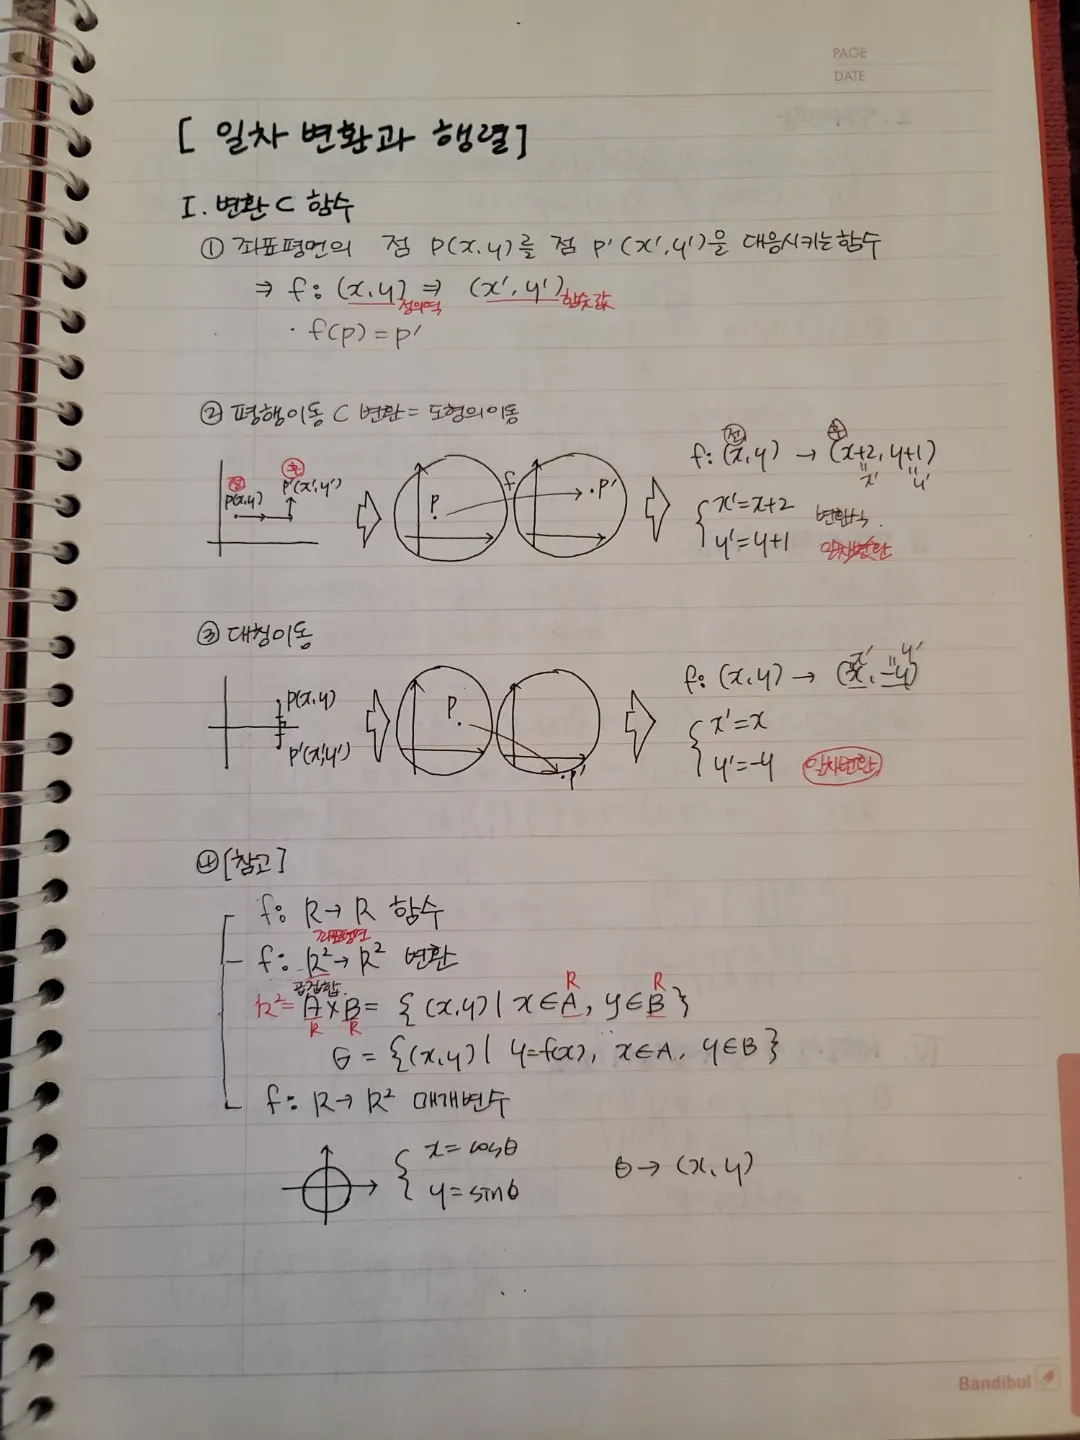 PAGE
DATE
[ 일차 변환과 행렬]
I. 변환 ⊂ 함수
① 좌표평면의 점 P(x,y)를 점 P'(x',y')을 대응시키는 함수
⇒ f: (x,y) ⇒ (x', y')
정의역 함숫값
· f(p) = p'
② 평행이동 ⊂ 변환 = 도형의 이동
전 후
P(x,y) P'(x',y')
P f P'
전 후
f: (x,y) → (x+2, y+1)
x' y'
x'=x+2
변환식.
y'=y+1
일차변환
③ 대칭이동
P(x,y)
P'(x',y')
P
P'
x' y'
f: (x,y) → (x, -y)
x'=x
y'=-y 일차변환
④ [참고]
f: R→R 함수
좌표평면
f: R²→R² 변환
곱집합
R R
R²= A×B= { (x,y) | x∈A, y∈B }
R R
G = {(x,y) | y=f(x), x∈A, y∈B }
f: R→R² 매개변수
x = cosθ
y = sinθ
θ → (x,y)
Bandibul